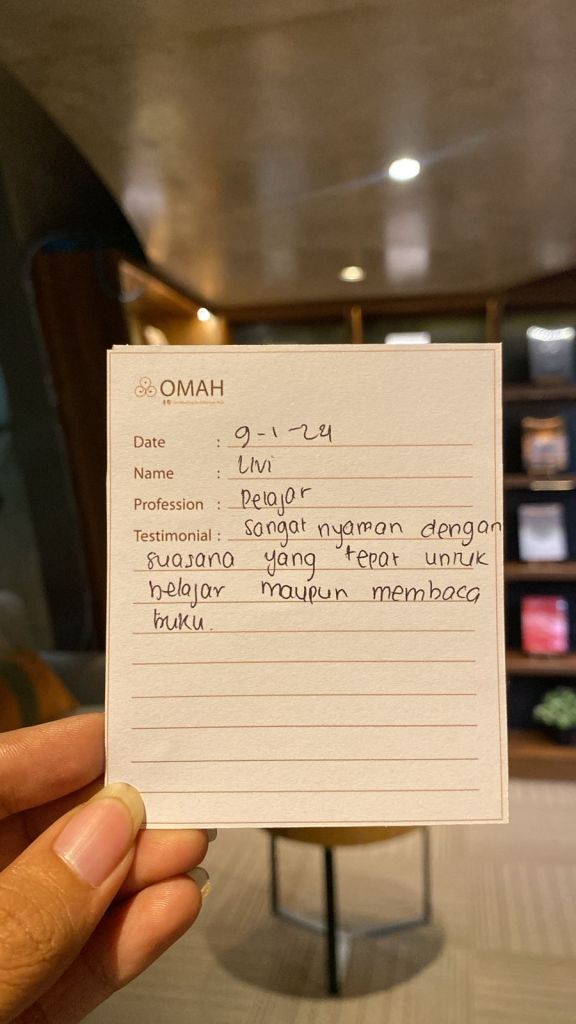 OMAH
Date : 9-1-24
Name : Livi
Profession : Pelajar
Testimonial : Sangat nyaman dengan
suasana yang tepat untuk
belajar maupun membaca
buku.